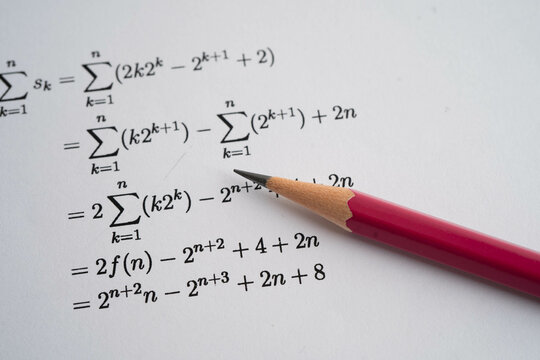 ∑_{k=1}^{n} s_k = ∑_{k=1}^{n} (2k2^k − 2^{k+1} + 2)
= ∑_{k=1}^{n} (k2^{k+1}) − ∑_{k=1}^{n} (2^{k+1}) + 2n
= 2 ∑_{k=1}^{n} (k2^k) − 2^{n+2} + 4 + 2n
= 2f(n) − 2^{n+2} + 4 + 2n
= 2^{n+2}n − 2^{n+3} + 2n + 8